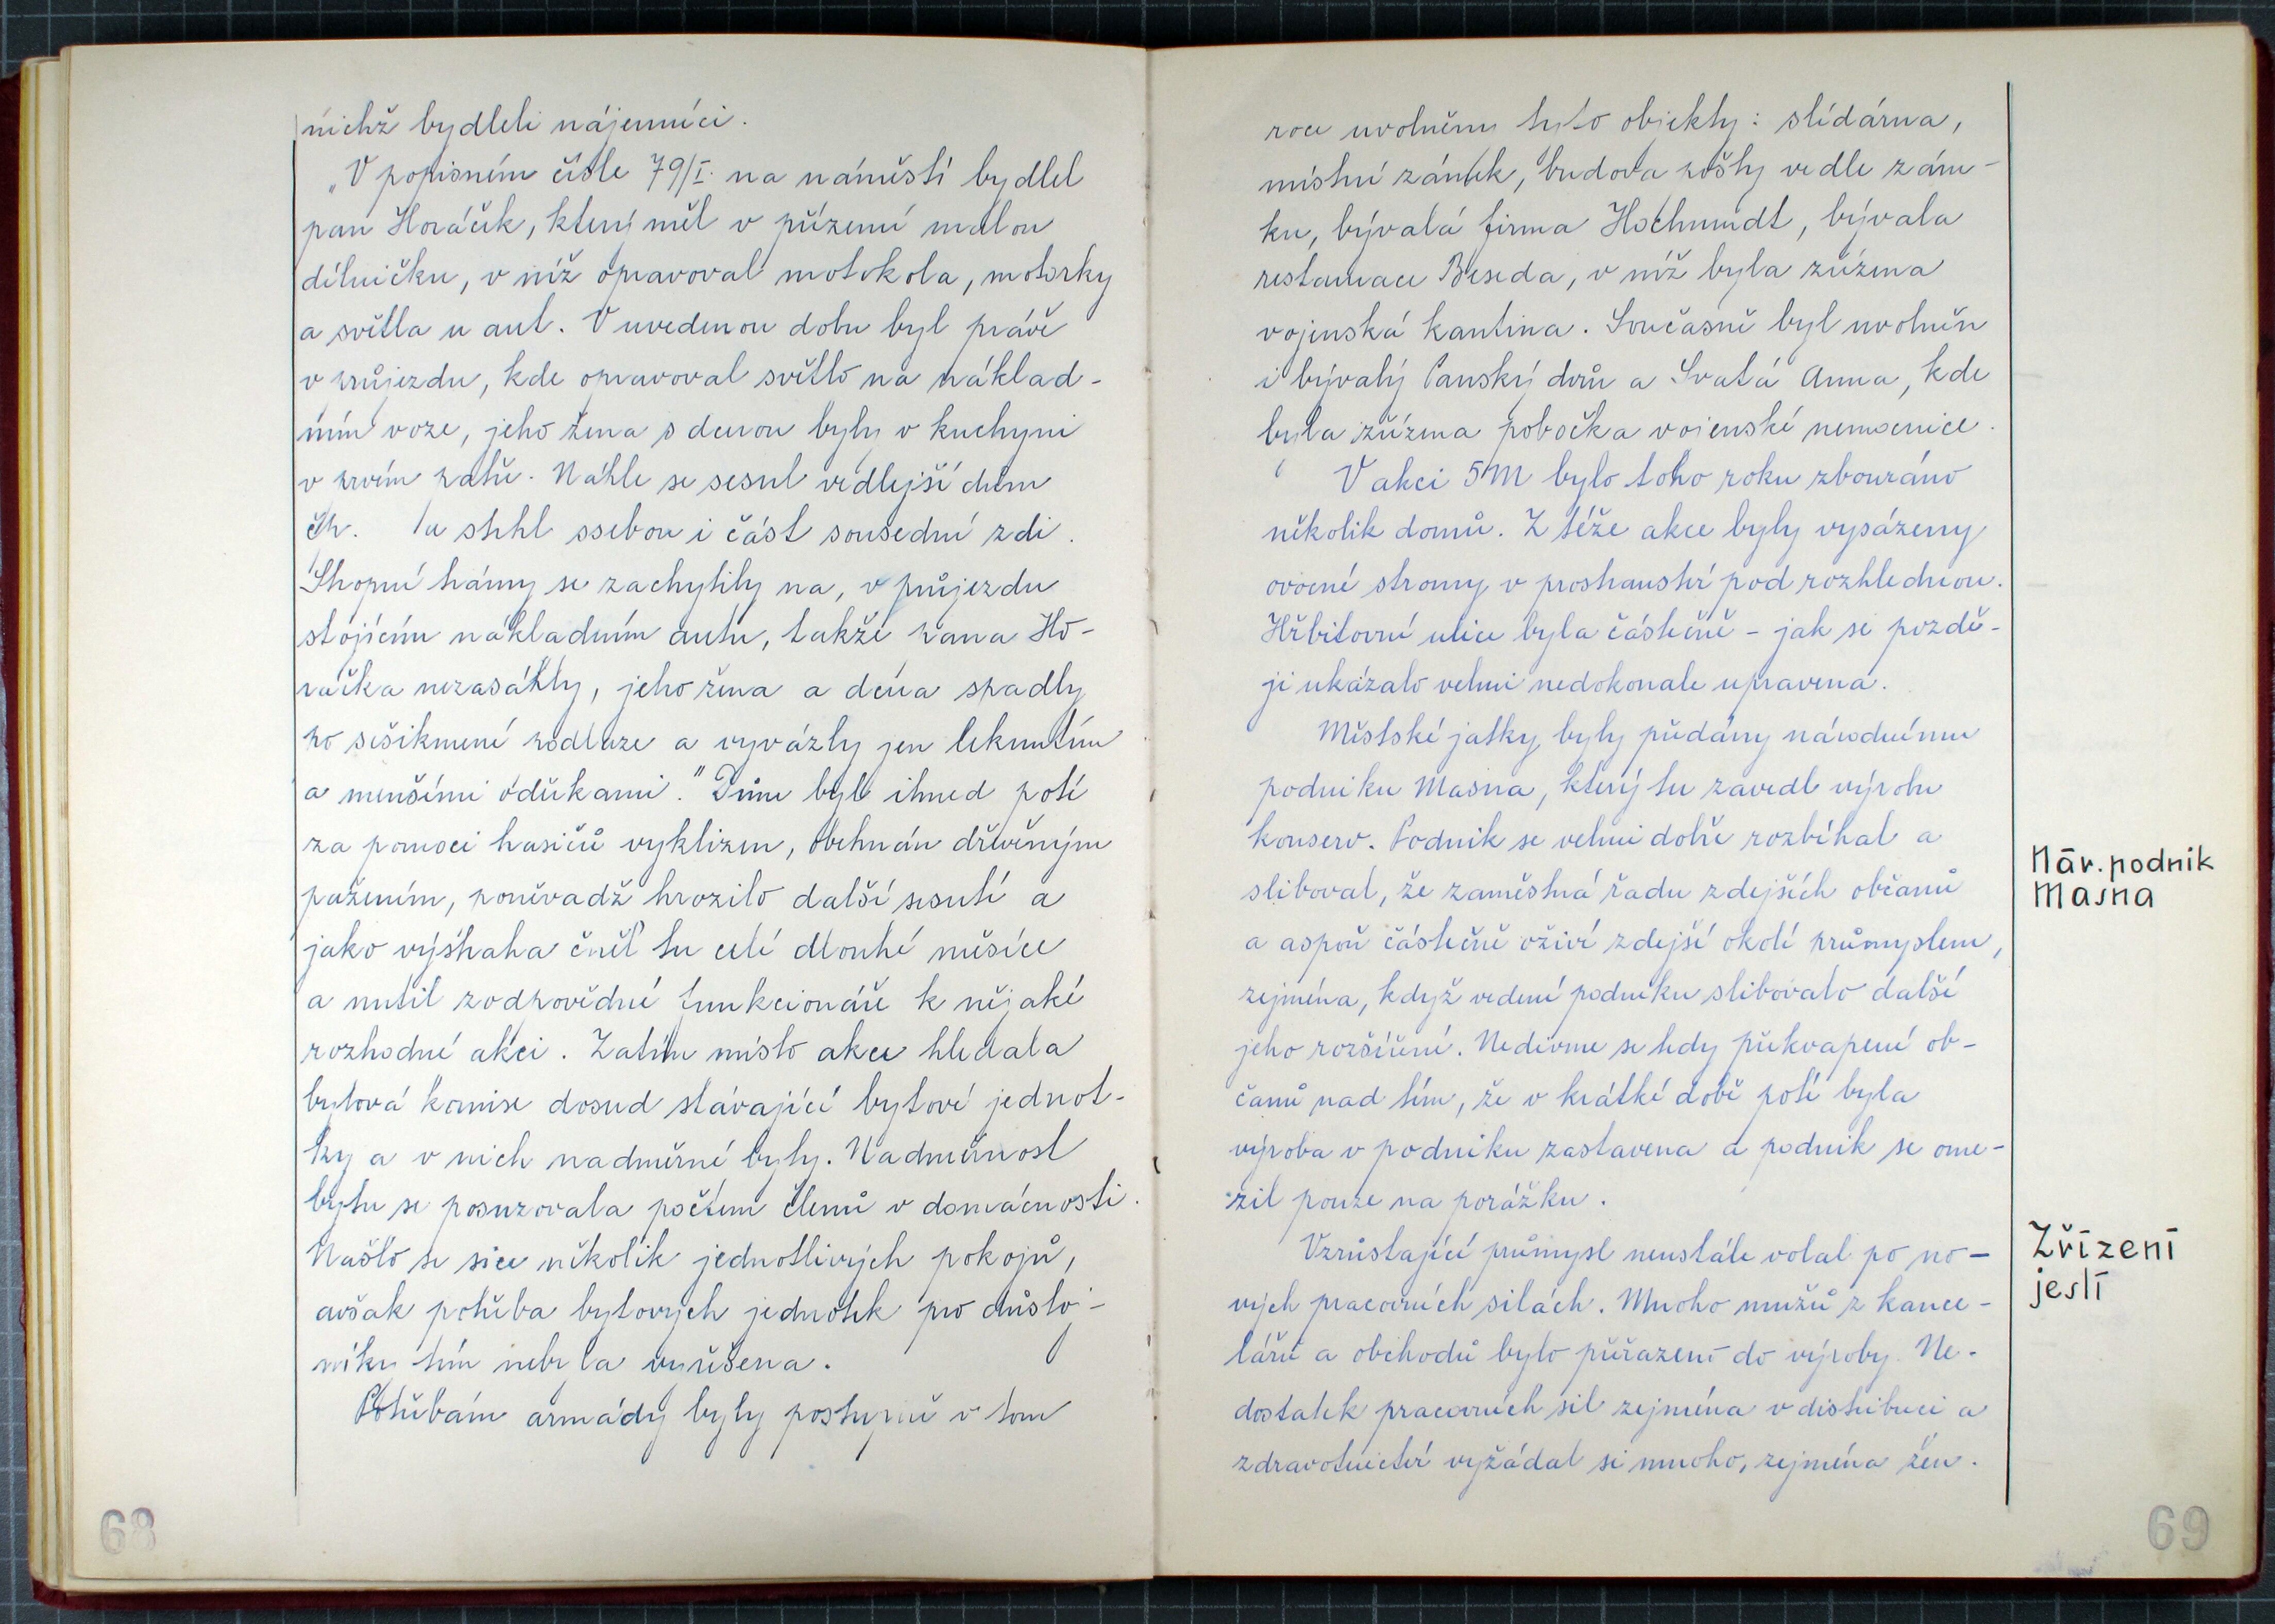 nichž bydleli nájemníci.
„V popisném čísle 79/I. na náměstí bydlel
pan Horáček, který měl v přízemí malou
dílničku, v níž opravoval motokola, motorky
a světla u aut. V uvedenou dobu byl právě
v průjezdu, kde opravoval světlo na náklad-
ním voze, jeho žena s dcerou byly v kuchyni
v prvém patře. Náhle se sesul vedlejší dům
čp. a strhl ssebou i část sousední zdi.
Stropní trámy se zachytily na, v průjezdu
stojícím nákladním autu, takže pana Ho-
ráčka nezasáhly, jeho žena a dcera spadly
po sešikmené podlaze a vyvázly jen leknutím
a menšími oděrkami." Dům byl ihned poté
za pomoci hasičů vyklizen, obehnán dřevěným
pažením, poněvadž hrozilo další sesutí a
jako výstraha čněl tu celé dlouhé měsíce
a nutil zodpovědné funkcionáře k nějaké
rozhodné akci. Zatím místo akce hledala
bytová komise dosud stávající bytové jednot-
ky a v nich nadměrné byty. Nadměrnost
bytu se posuzovala počtem členů v domácnosti.
Našlo se sice několik jednotlivých pokojů,
avšak potřeba bytových jednotek pro důstoj-
níky tím nebyla vyřešena.
Potřebám armády byly postupně v tom
68
roce uvolněny tyto objekty: slídárna,
místní zámek, budova pošty vedle zám-
ku, bývalá firma Hochmudt, bývala
restaurace Beseda, v níž byla zřízena
vojenská kantina. Současně byl uvolněn
i bývalý Panský dvůr a Svatá Anna, kde
byla zřízena pobočka vojenské nemocnice.
V akci 5M bylo toho roku zbouráno
několik domů. Z téže akce byly vysázeny
ovocné stromy v prostranství pod rozhlednou.
Hřbitovní ulice byla částečně - jak se pozdě-
ji ukázalo velmi nedokonale upravena.
Městské jatky byly přidány národnímu
podniku Masna, který tu zavedl výrobu
konserv. Podnik se velmi dobře rozbíhal a
sliboval, že zaměstná řadu zdejších občanů
a aspoň částečně oživí zdejší okolí průmyslem,
zejména, když vedení podniku slibovalo další
jeho rozšíření. Nedivme se tedy překvapení ob-
čanů nad tím, že v krátké době poté byla
výroba v podniku zastavena a podnik se ome-
zil pouze na porážku.
Vzrůstající průmysl neustále volal po no-
vých pracovních silách. Mnoho mužů z kance-
láří a obchodů bylo přeřazeno do výroby. Ne-
dostatek pracovních sil zejména v distribuci a
zdravotnictví vyžádal si mnoho, zejména žen.
Nár. podnik
Masna
Zřízení
jeslí
69